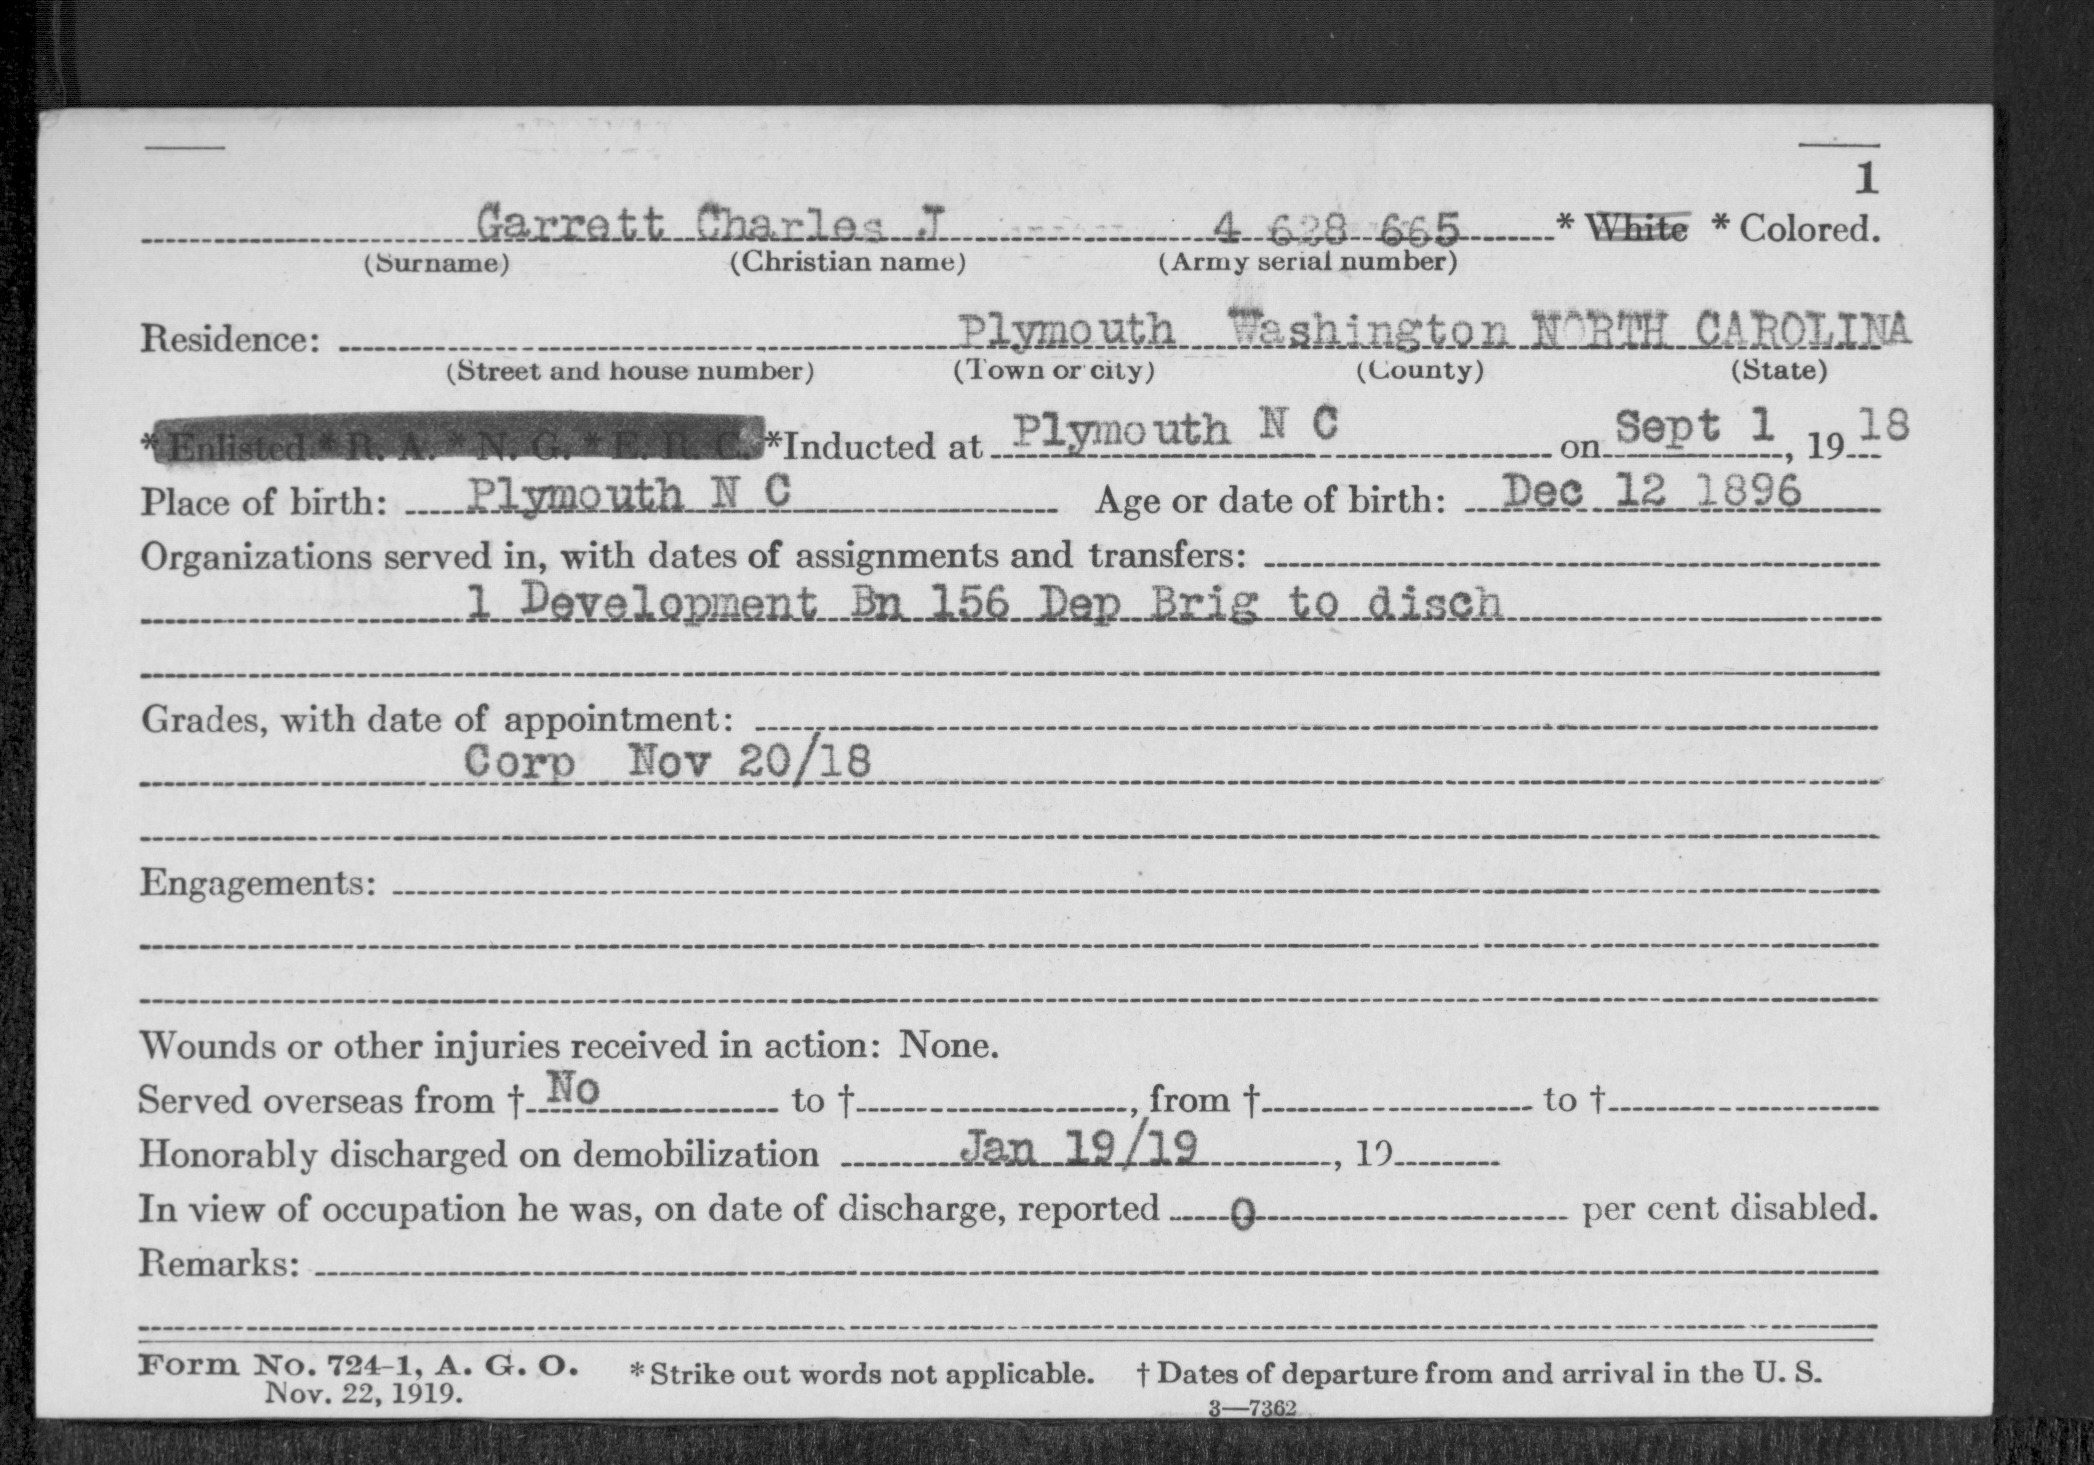 1
Garrett Charles J 4 628 665 * White * Colored.
(Surname) (Christian name) (Army serial number)
Residence: Plymouth Washington NORTH CAROLINA
(Street and house number) (Town or city) (County) (State)
* Enlisted * R. A. * N. G. * E. R. C. *Inducted at Plymouth N C on Sept 1, 1918
Place of birth: Plymouth N C Age or date of birth: Dec 12 1896
Organizations served in, with dates of assignments and transfers:
1 Development Bn 156 Dep Brig to disch
Grades, with date of appointment:
Corp Nov 20/18
Engagements:
Wounds or other injuries received in action: None.
Served overseas from † No to †, from † to †
Honorably discharged on demobilization Jan 19/19, 19
In view of occupation he was, on date of discharge, reported 0 per cent disabled.
Remarks:
Form No. 724-1, A. G. O. * Strike out words not applicable. † Dates of departure from and arrival in the U. S.
Nov. 22, 1919.
3—7362